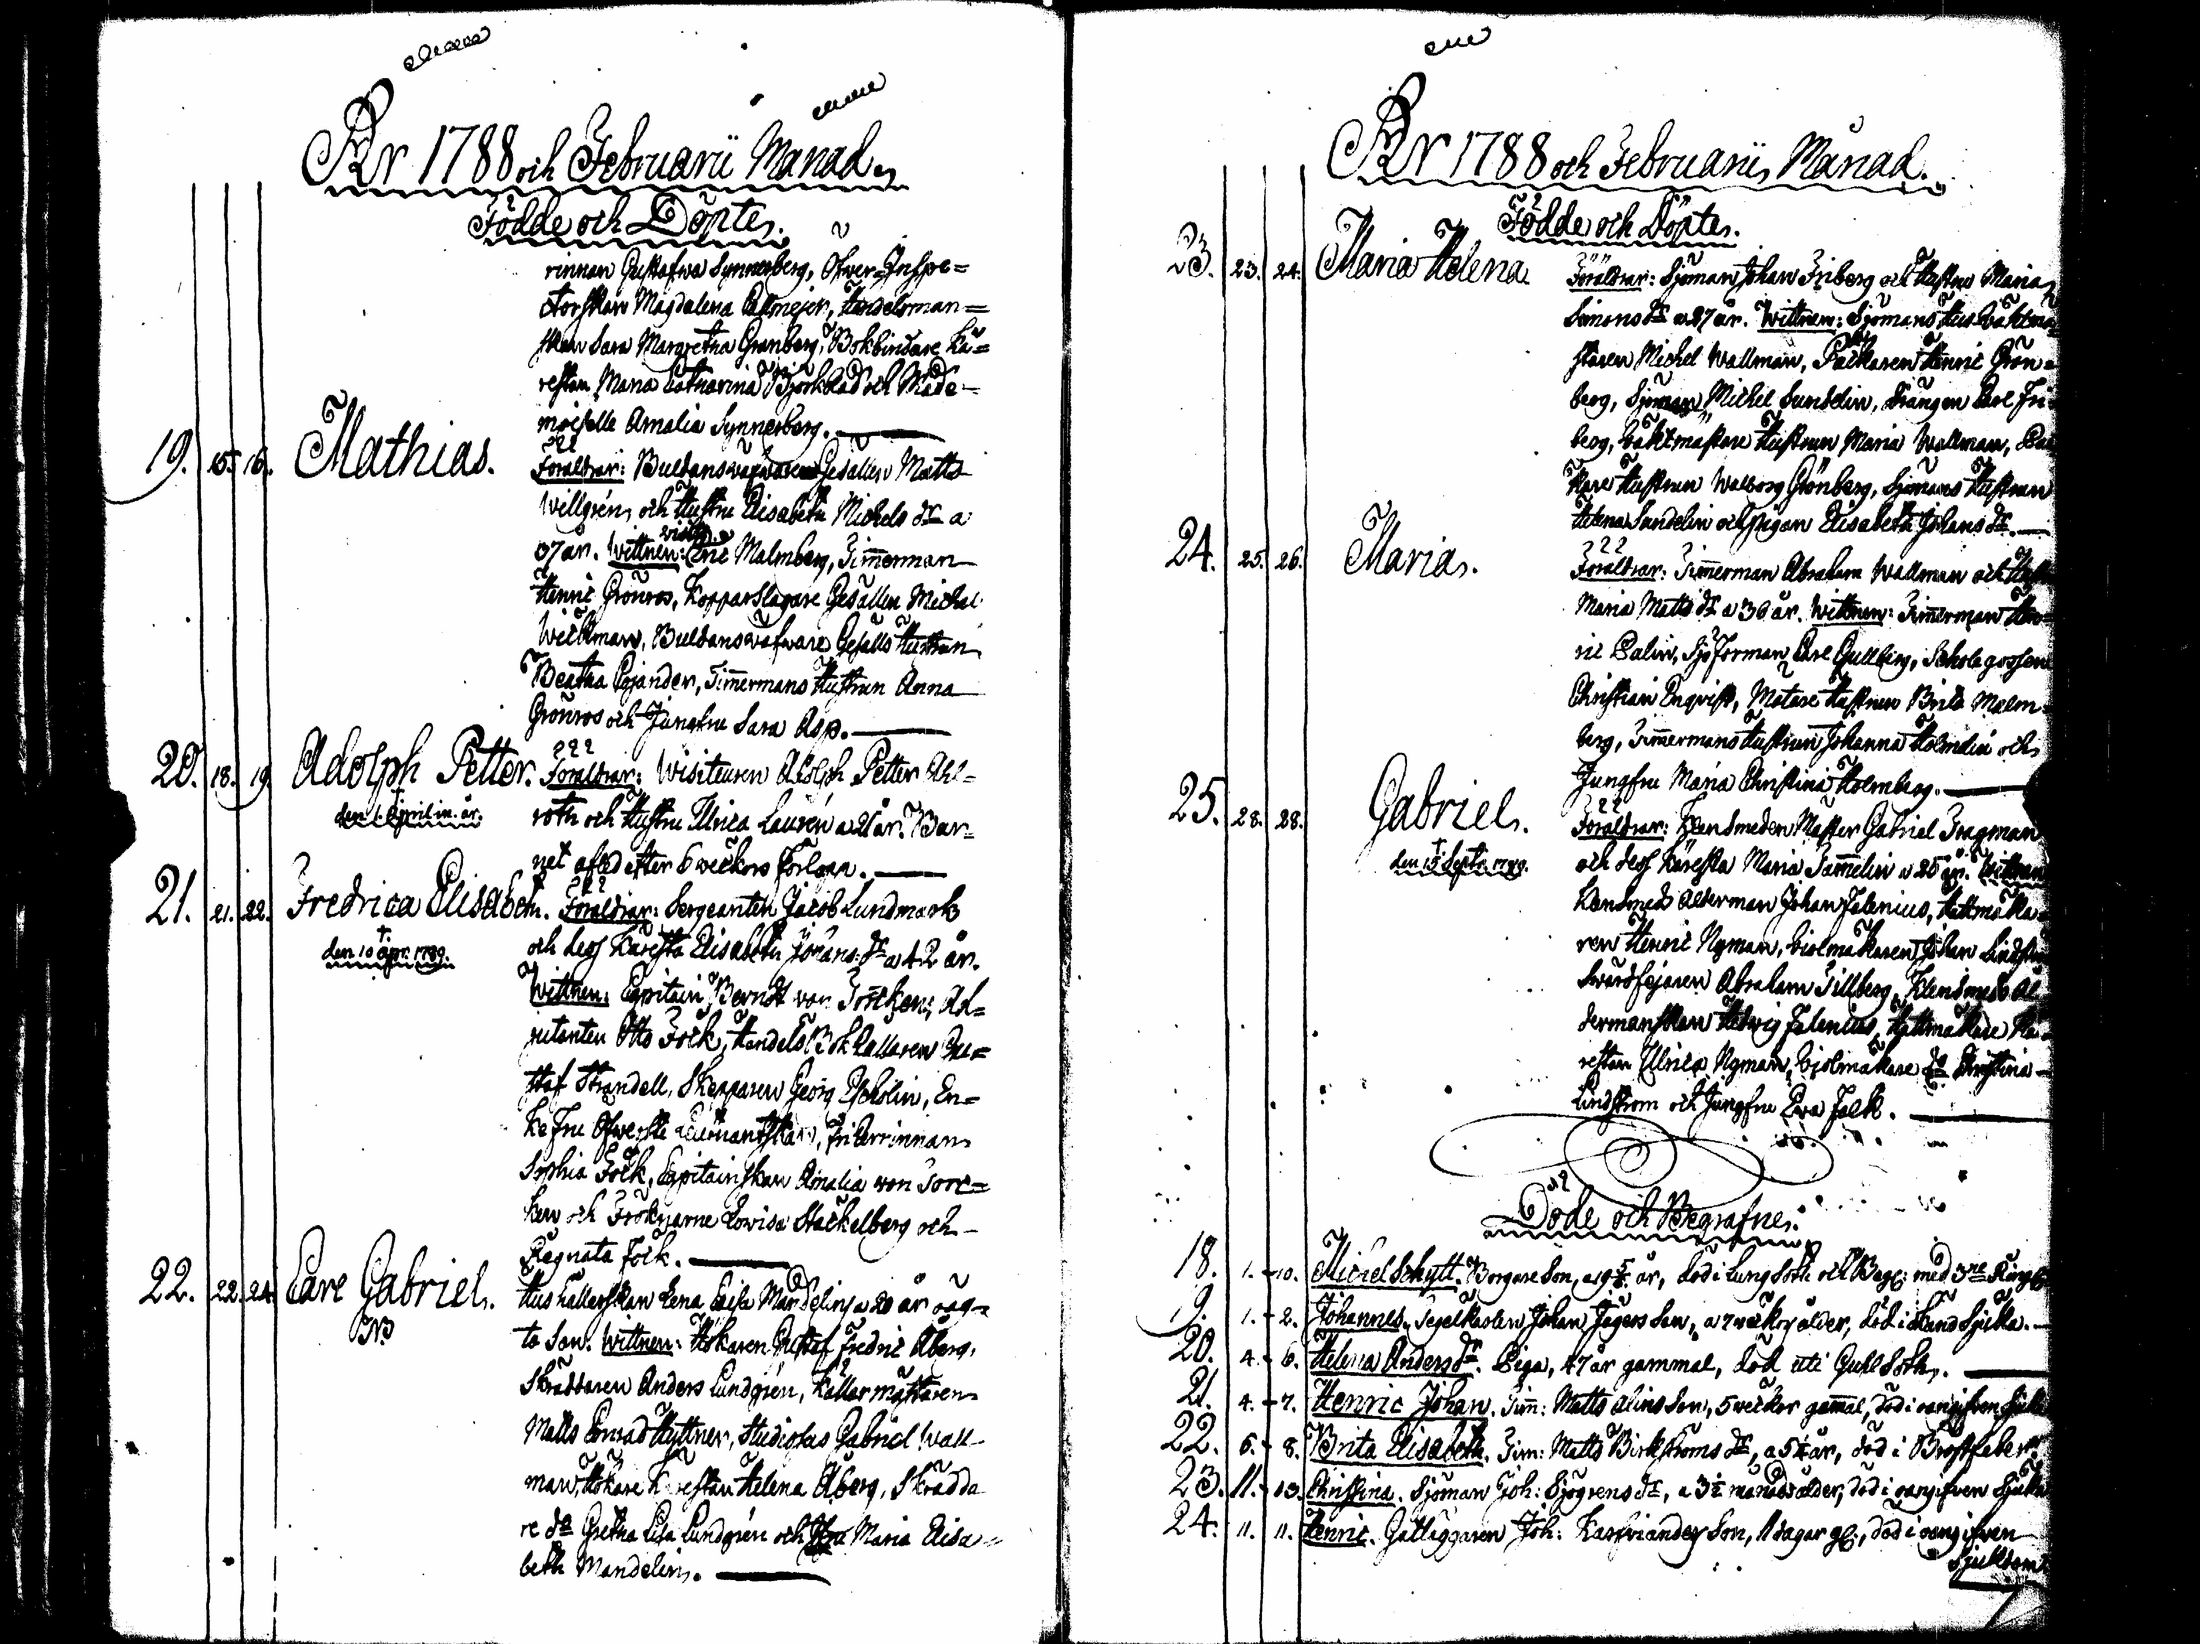 År 1788 och Februarii Månad.
Födde och Döpte.
rinnan Gustafwa Synnerberg, Öfwer-Inspe=
ctorskan Magdalena Pallmejer, Handelsman=
skan Sara Margretha Granberg, Bokbindare Kä=
restan Maria Catharina Björkblad och Made=
moiselle Amalia Synnerberg.
19. 15. 16. Mathias. Föräldrar: Buldanswäfware Gesällen Matts
Willgrén och Hustru Elisabeth Michels dr a
37 år. Wittnen: Eric Malmberg, Timmerman
Henric Grönros, Kopparslagare Gesällen Michel
Wickman, Buldanswäfware Gesälls Hustrun
Beatha Cajander, Timmermans Hustrun Anna
Grönros och Jungfru Sara Asp.
20. 18. 19. Adolph Petter. Föräldrar: Visiteuren Adolph Petter Ahl=
den 1 April in. år.
roth och Hustru Ulrica Laurén a 21 år. Bar=
net afled efter 6 weckors förlopp.
21. 21. 22. Fredrica Elisabeth. Föräldrar: Sergeanten Jacob Lundmark
den 10 apr. 1789.
och dess Käresta Elisabeth Johans dr a 42 år.
Wittnen: Capitain Berndt von Torcken, Ad=
jutanten Otto Fock, Handels Bokhållaren Gu=
staf Strandell, Skepparen Georg Escholin, En=
ke Fru Öfwerste Lieutnantskan, Friherrinnan
Sophia Fock, Capitainskan Amalia von Torc=
ken och Fröknarne Lowisa Stackelberg och
Regnata Fock.
22. 22. 24. Carl Gabriel. Hushållerskan Lena Caisa Mandelin a 20 år oäg=
NB
ta Son. Wittnen: Hökaren Gustaf Fredric Åberg,
Skräddaren Anders Lundgrén, Källarmästaren
Matts Conrad Hyttner, Studiosus Gabriel Wall=
man, Hökare Kärestan Helena Åberg, Skrädda
re do Gretha Lisa Lundgrén och Jfru Maria Elisa=
beth Mandelin.
År 1788 och Februarii Månad.
Födde och Döpte.
23. 23. 24. Maria Helena. Föräldrar: Sjöman Johan Friberg och Hustru Maria
Simons dr a 27 år. Wittnen: Sjömans Hus Waktmä
staren Michel Wallman, Packaren Henric Grön=
berg, Sjöman Michel Sundelin, Drängen Carl Fri=
berg, Waktmästare Hustrun Maria Wallman, Pac
kare Hustrun Walborg Grönberg, Sjömans Hustrun
Helena Sundelin och Pigan Elisabeth Johans dr.
24. 25. 26. Maria. Föräldrar: Timmerman Abraham Wallman och Hustru
Maria Matts dr a 36 år. Wittnen: Timmerman Hen=
ric Palin, Sjöförman Carl Gullberg, Schole gossen
Christian Engvist, Mätare Hustrun Brita Malm=
berg, Timmermans Hustrun Johanna Holmdén och
Jungfru Maria Christina Holmberg.
25. 28. 28. Gabriel. Föräldrar: Klensmeden Mäster Gabriel Fragman
den 15 Septr. 1789.
och dess Käresta Maria Tammelin a 25 år. Wittnen
Klensmeds Ålderman Johan Falenius, Hattmaka=
ren Henric Nyman, Violmakaren Johan Lindström
Swärdfejaren Abraham Tillberg, Klensmeds Ål
dermanskan Hedwig Falenius, Hattmakare Kä=
restan Ulrica Nyman, Violmakare do Christina
Lindström och Jungfru Ewa Falck.
Döde och Begrafne.
18. 1. - 10. Michel Schytt. Borgare Son, död i Lungsot och Begr: med 3ne Ringn
19. 1. - 2. Johannes. Segelkarlen Johan Jägers Son, a 7 weckors ålder, död i okänd Sjukd.
20. 4. - 6. Helena Anders dr. Piga, 47 år gammal, död uti Gulsot.
21. 4. - 7. Henric Johan. Tim: Matts Alins Son, 5 weckor gammal, död i oangifwen Sjukd
22. 6. - 8. Brita Elisabeth. Tim: Matts Birkströms dr, a 5 1/4 år, död i Bröstfeber.
23. 11. - 13. Christina. Sjöman Joh: Sjögrens dr, a 3 1/2 månads ålder, död i oangifwen Sjukd
24. 11. 11. Henric. Gatläggaren Joh: Karhrianders Son, 11 dagar gl:, död i oangifwen
Sjukdom.